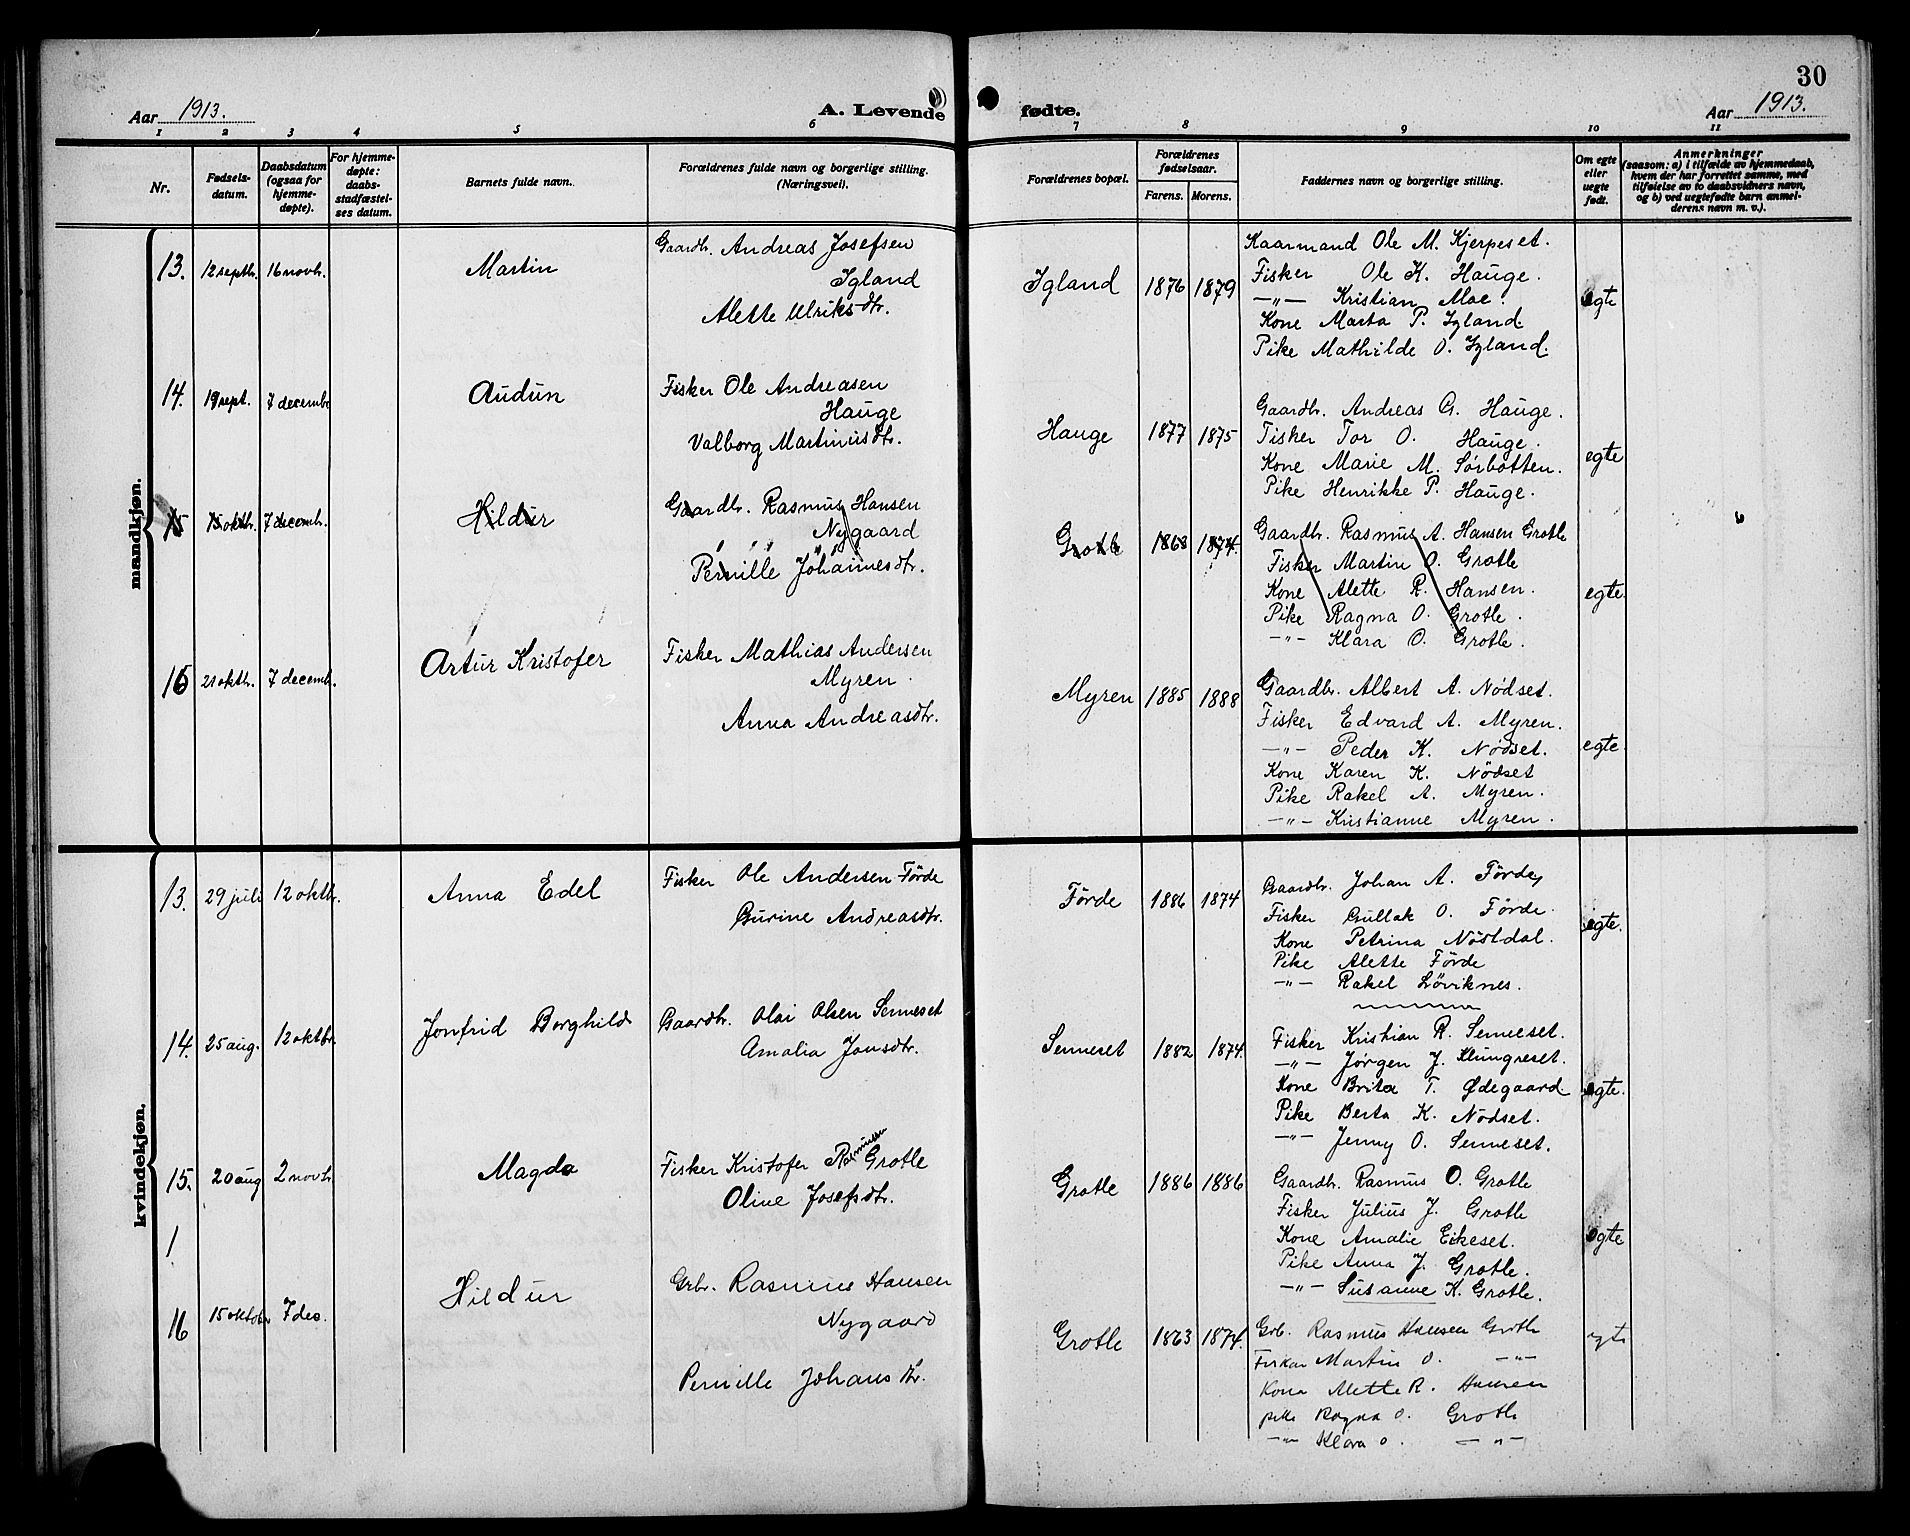 30
Aar 1913. A. Levende fødte. Aar 1913.
1 2 3 4 5 6 7 8 9 10 11
Nr.
Fødsels-
datum.
Daabsdatum
(ogsaa for
hjemme-
døpte).
For hjemme-
døpte:
daabs-
stadfæstel-
ses datum.
Barnets fulde navn.
Forældrenes fulde navn og borgerlige stilling.
(Næringsvei).
Forældrenes bopæl.
Forældrenes
fødselsaar.
Farens. Morens.
Faddernes navn og borgerlige stilling.
Om egte
eller
uegte
født.
Anmerkninger
(saasom: a) i tilfælde av hjemmedaab,
hvem der har forrettet samme, med
tilføielse av to daabsvidners navn,
og b) ved uegtefødte barn anmel-
derens navn m. v.).
mandkjøn.
13. 12 septbr. 16 novbr. Martin
Gaardbr. Andreas Josefsen
Igland
Alette Ulriksdtr.
Igland 1876 1879
Kaarmand Ole M. Kjerpeset.
Fisker Ole K. Hauge.
—"— Kristian Moe.
Kone Marta P. Igland.
Pike Mathilde O. Igland.
egte
14. 19 sept. 7 decembr Audun
Fisker Ole Andreasen
Hauge
Valborg Martinusdtr.
Hauge 1877 1875
Gaardbr. Andreas G. Hauge.
Fisker Tor O. Hauge.
Kone Marie M. Sørbotten.
Pike Henrikke P. Hauge.
egte
15 15 oktbr. 7 decembr. Hildur
Gaardbr. Rasmus Hansen
Nygaard
Pernille Johannesdtr.
Grotle 1868 1874.
Gaardbr. Rasmus A. Hansen Grotle
Fisker Martin O. Grotle
Kone Alette R. Hansen.
Pike Ragna O. Grotle.
—"— Klara O. Grotle.
egte.
16 21 oktbr. 7 decembr. Artur Kristofer
Fisker Mathias Andersen
Myren.
Anna Andreasdtr.
Myren 1885 1888
Gaardbr. Albert A. Nødset.
Fisker Edvard A. Myren.
—"— Peder K. Nødset.
Kone Karen K. Nødset
Pike Rakel A. Myren.
—"— Kristianne Myren.
egte.
kvindekjøn.
13. 29 juli 12 oktbr. Anna Edel
Fisker Ole Andersen Førde
Gurine Andreasdtr.
Førde 1886 1874
Gaardbr. Johan A. Førde
Fisker Gullak O. Førde.
Kone Petrina Nøstdal.
Pike Alette Førde
—"— Rakel Løviknes.
egte.
14. 25 aug. 12 oktbr. Jonfrid Borghild
Gaardbr. Olai Olsen Senneset
Amalia Jonsdtr.
Senneset 1882 1874.
Fisker Kristian R. Senneset.
—"— Jørgen J. Klungreset.
Kone Brita T. Ødegaard.
Pike Berta K. Nødset.
—"— Jenny O. Senneset.
egte.
15. 20 aug 2 novbr. Magda
Fisker Kristofer Rasmussen Grotle
Oline Josefsdtr.
Grotle 1886 1886
Gaardbr. Rasmus O. Grotle
Fisker Julius J. Grotle
Kone Amalie Eikeset.
Pike Anna J. Grotle.
—"— Susanne K. Grotle.
egte
1
16 15 oktober 7 des. Hildur
Grbr. Rasmus Hansen
Nygaard
Pernille Johansdtr.
Grotle 1863 1874.
Grb. Rasmus Hansen Grotle
Fisker Martin O. —"—
Kona Alette R. Hansen
pike Ragna O. Grotle
—"— Klara O. —"—
egte